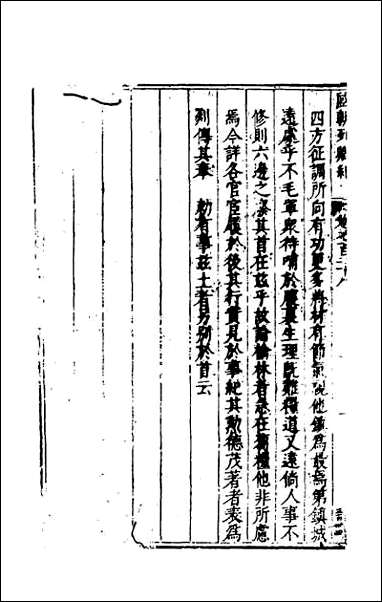 國朝列卿紀 卷之一百二十八
四方征調所向有功更多將材有節氣視他鎮為最為第鎮城
遠處乎不毛軍眾待哺於生理既難糧道又遠倘人事不
修則六邊之其首在茲乎故論榆林者患在糧他非所慮
焉今詳各官官履於後其行實見於事紀其勲德茂著者表為
列傳其奉 勅有事茲土者另別於首云